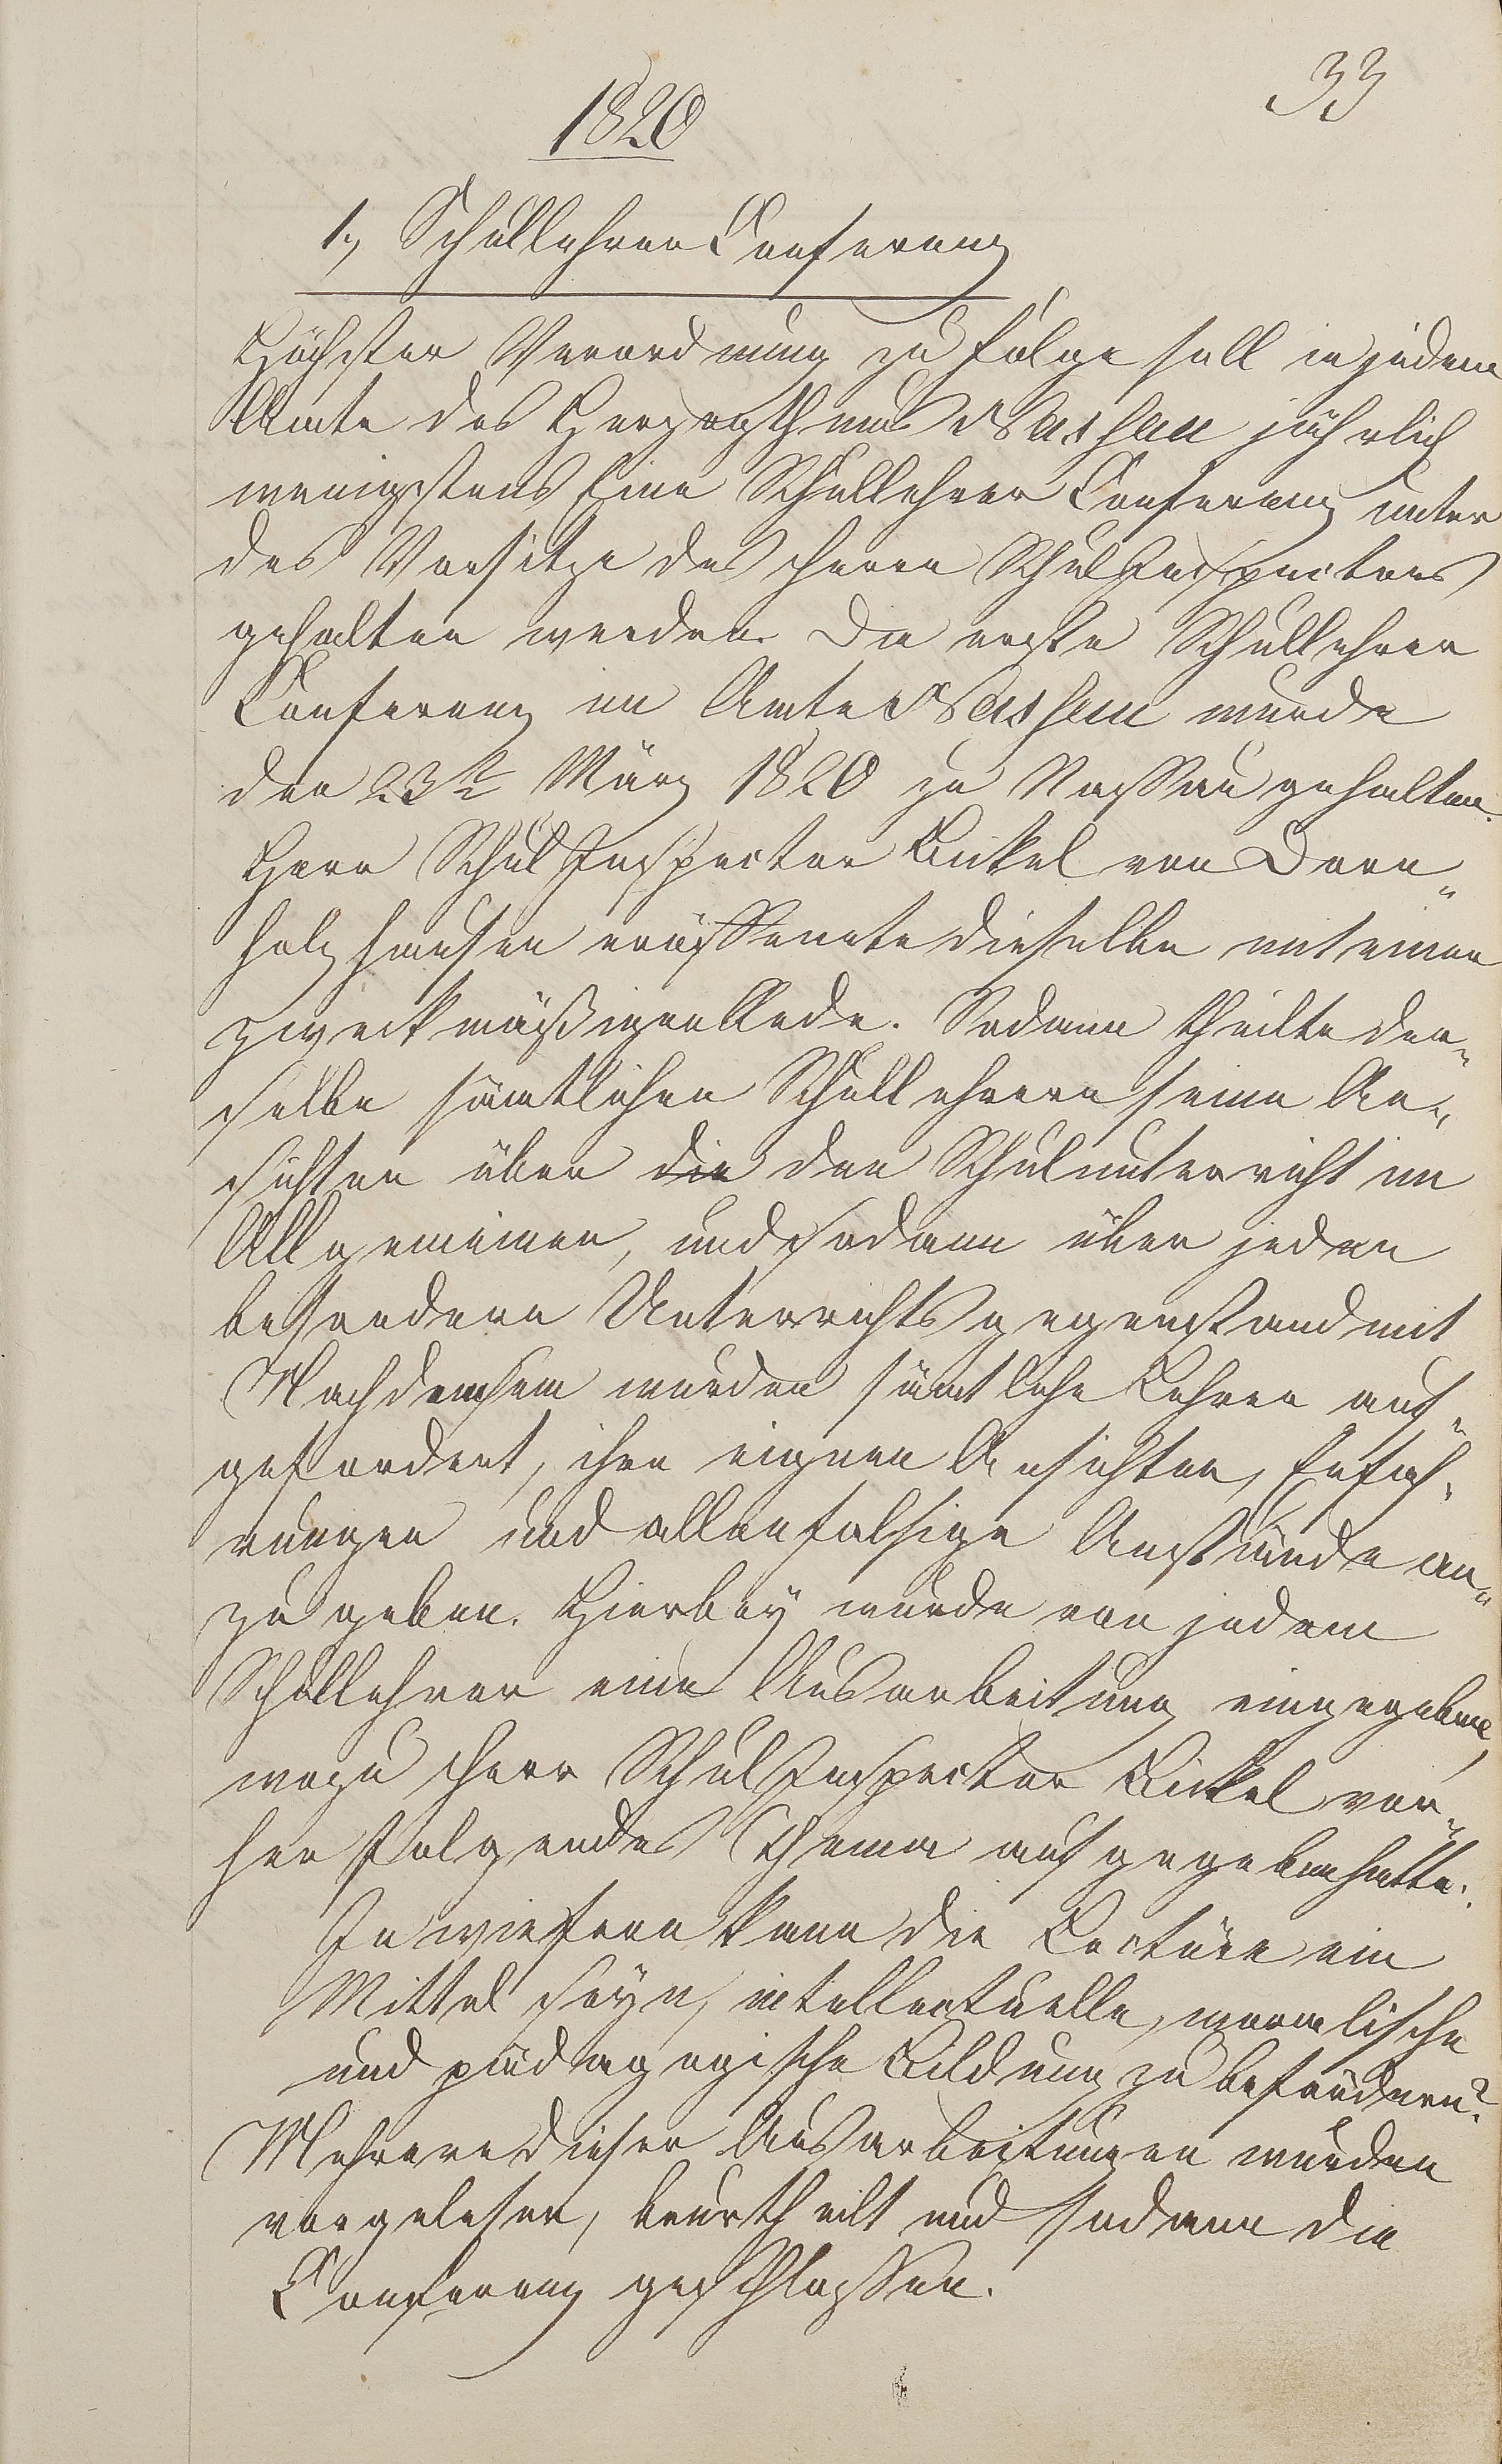 33
1820
1, Schullehrer Conferenz
Höchster Verordnung zu Folge soll in jedem
Amte des Herzogthums Nassau jährlich
wenigstens Eine Schullehrer Conferenz unter
des Vorsitze des Herrn Schul Inspectors
gehalten werden. Die erste Schullehrer
Conferenz im Amte Nassau wurde
den 23t März 1820 zu Nassau gehalten.
Herr Schul Inspector Bickel von Dorn„
holzhausen eröffnete dieselbe mit einer
zweckmäßigen Rede. Sodann theilte der„
selbe sämtlichen Schullehrern seine An„
sichten über die den Schulunterricht im
Allgemeinen, und sodann über jeden
besondern Unterrichtsgegenstand mit
Nachdem wurden sämtliche Lehrer auf„
gefordert, ihre eignen Ansichten, Erfah„
rungen und allenfalsige Anstände an„
zu geben. Hierbey wurde von jedem
Schullehrer eine Ausarbeitung eingegeben,
wozu Herr Schul Inspector Bickel vor„
her folgendes Thema aufgegeben hatte:
In wiefern kann die Lectüre ein
Mittel seyn, intellectuelle, moralische
und pädagogische Bildung zu befördern?
Mehrere dieser Ausarbeitungen wurden
vorgelesen, beurtheilt und sodann die
Conferenz geschlossen.